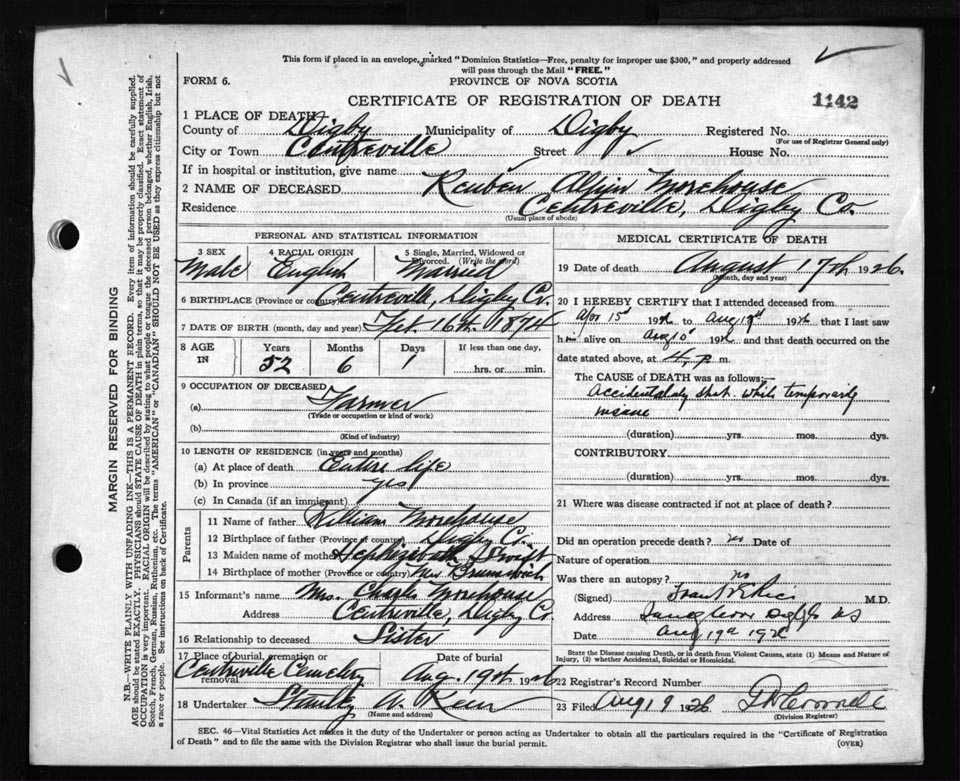 This form if placed in an envelope, marked "Dominion Statistics—Free, penalty for improper use $300," and properly addressed
will pass through the Mail "FREE."
FORM 6.
PROVINCE OF NOVA SCOTIA
CERTIFICATE OF REGISTRATION OF DEATH
1142
1 PLACE OF DEATH
County of Digby Municipality of Digby Registered No.
(For use of Registrar General only)
City or Town Centreville Street House No.
If in hospital or institution, give name
2 NAME OF DECEASED Reuben Alpin Morehouse
Residence Centreville, Digby Co.
(Usual place of abode)
PERSONAL AND STATISTICAL INFORMATION
3 SEX 4 RACIAL ORIGIN 5 Single, Married, Widowed or Divorced. (Write the word)
Male English Married
6 BIRTHPLACE (Province or country) Centreville, Digby Co.
7 DATE OF BIRTH (month, day and year) Feb. 16th. 1874
8 AGE IN Years Months Days If less than one day,
52 6 1 hrs. or min.
9 OCCUPATION OF DECEASED
(a) Farmer
(Trade or occupation or kind of work)
(b)
(Kind of industry)
10 LENGTH OF RESIDENCE (in years and months)
(a) At place of death Entire life
(b) In province yes
(c) In Canada (if an immigrant)
Parents
11 Name of father William Morehouse
12 Birthplace of father (Province or country) Digby Co.
13 Maiden name of mother Hephzibath Swift
14 Birthplace of mother (Province or country) New Brunswick
15 Informant's name Mrs. Charles Morehouse
Address Centreville, Digby Co.
16 Relationship to deceased Sister
17 Place of burial, cremation or removal Date of burial
Centreville Cemetery Aug. 19th 1926
18 Undertaker Stanley W.
(Name and address)
MEDICAL CERTIFICATE OF DEATH
19 Date of death August 17th 1926.
(Month, day and year)
20 I HEREBY CERTIFY that I attended deceased from
Apr 15th 1926 to Aug 17th 1926 that I last saw
him alive on Aug 10th 1926 and that death occurred on the
date stated above, at 4 p. m.
The CAUSE OF DEATH was as follows:—
Accidentally shot while temporarily
insane
(duration) yrs. mos. dys.
CONTRIBUTORY
(duration) yrs. mos. dys.
21 Where was disease contracted if not at place of death?
Did an operation precede death? no Date of
Nature of operation
Was there an autopsy? no
(Signed) M.D.
Address Digby NS
Date Aug 19th 1926
State the Disease causing Death, or in death from Violent Causes, state (1) Means and Nature of
Injury, (2) whether Accidental, Suicidal or Homicidal.
22 Registrar's Record Number
23 Filed Aug 19 1926
(Division Registrar)
SEC. 46—Vital Statistics Act makes it the duty of the Undertaker or person acting as Undertaker to obtain all the particulars required in the "Certificate of Registration
of Death" and to file the same with the Division Registrar who shall issue the burial permit.
(OVER)
MARGIN RESERVED FOR BINDING
N.B.—WRITE PLAINLY WITH UNFADING INK—THIS IS A PERMANENT RECORD. Every item of information should be carefully supplied.
AGE should be stated EXACTLY. PHYSICIANS should STATE CAUSE OF DEATH in plain terms, so that it may be properly classified. Exact statement of
OCCUPATION is very important. RACIAL ORIGIN will be described by stating to what people or tongue the deceased person belonged, whether English, Irish,
Scotch, French, German, Russian, Ruthenian, etc. The terms "AMERICAN" or "CANADIAN" SHOULD NOT BE USED as they express citizenship but not
a race or people. See instructions on back of Certificate.